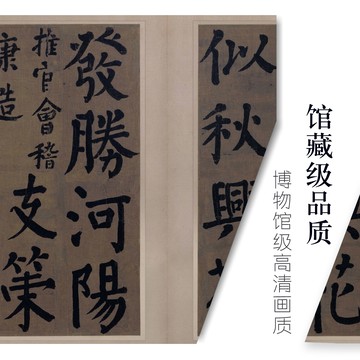 花
馆藏级品质
博物馆级高清画质
似秋興
發勝河陽
推官會稽
康造
支策